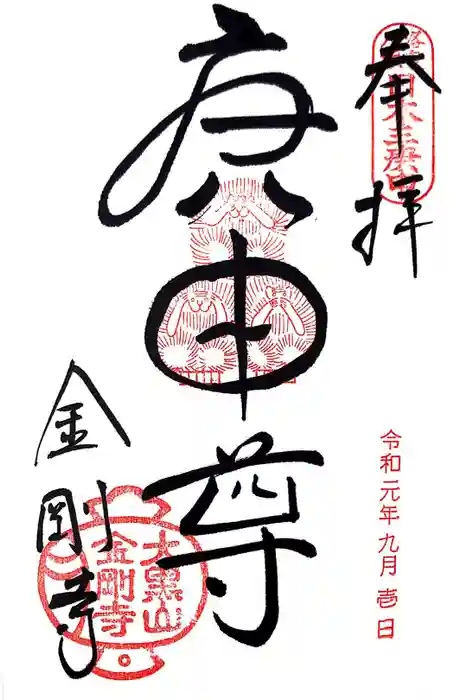 奉拝
日本三庚申
令和元年九月壱日
庚申尊
金剛寺
大黒山
金剛寺